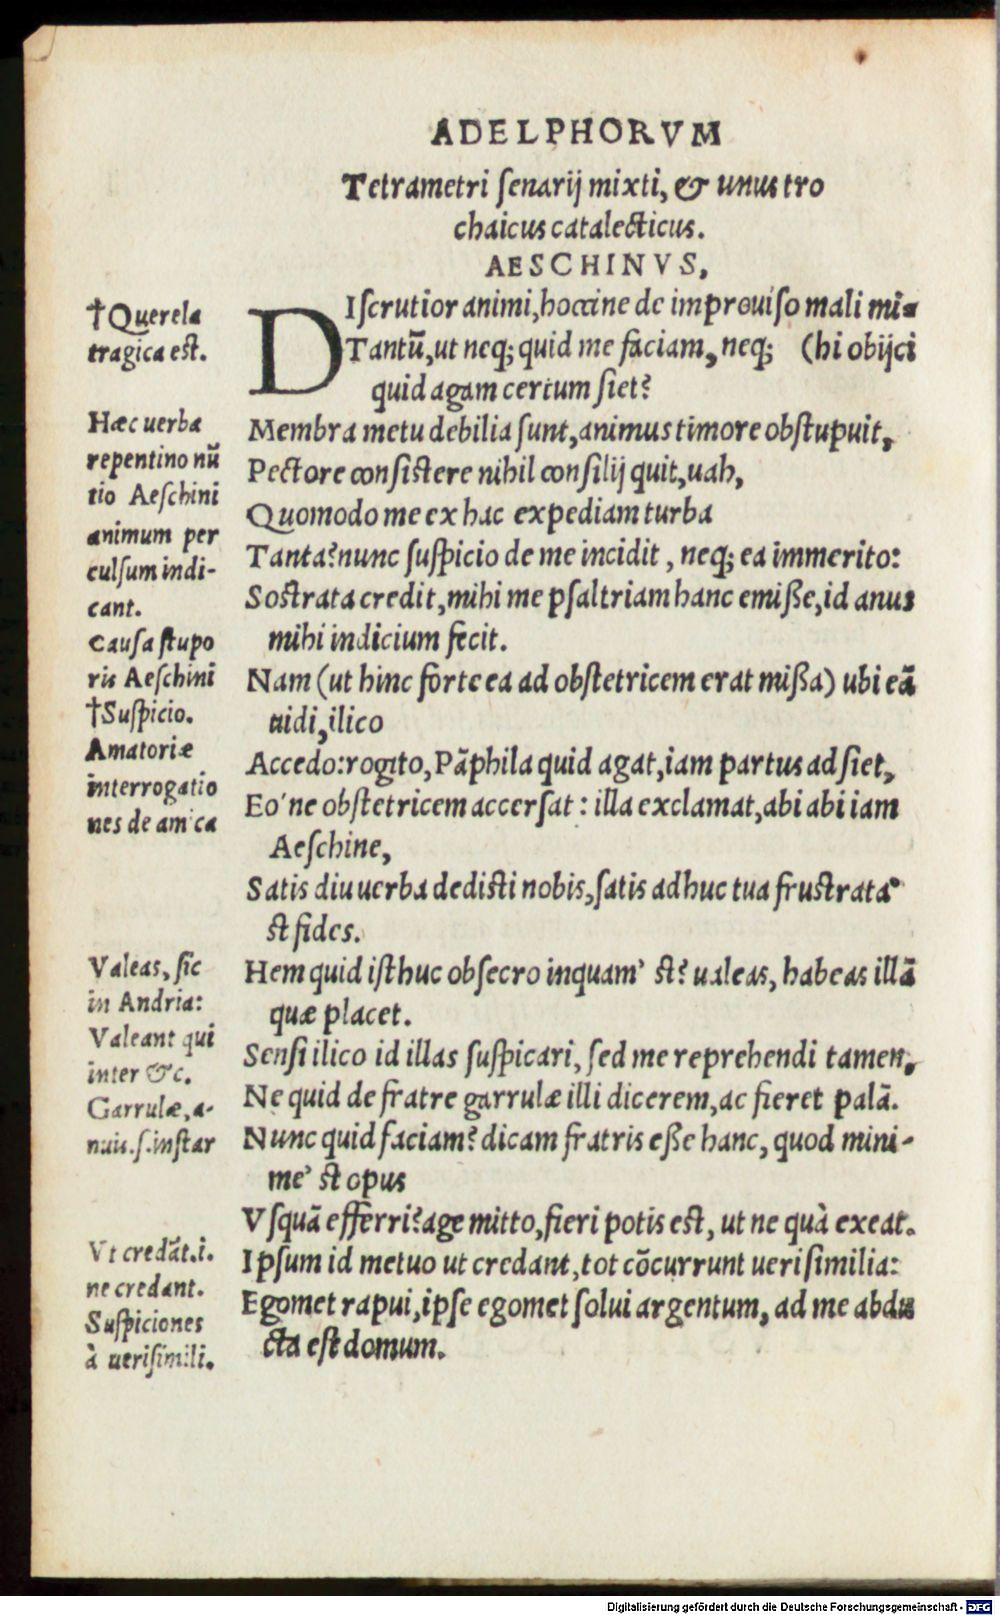 ADELPHORVM
Tetrametri ſenarij mixti, & unus tro
chaicus catalecticus.
AESCHINVS,
DIſcrutior animi, hoccine de improuiſo mali mi-
Tantū, ut neq; quid me faciam, neq; (hi obijci
quid agam certum ſiet?
Membra metu debilia ſunt, animus timore obſtupuit,
Pectore conſiſtere nihil conſilij quit, uah,
Quomodo me ex hac expediam turba
Tanta? nunc ſuſpicio de me incidit, neq; ea immerito:
Soſtrata credit, mihi me pſaltriam hanc emiſſe, id anus
mihi indicium fecit.
Nam (ut hinc forte ea ad obſtetricem erat miſſa) ubi eā
uidi, ilico
Accedo: rogito, Pāphila quid agat, iam partus adſiet,
Eo'ne obſtetricem accerſat: illa exclamat, abi abi iam
Aeſchine,
Satis diu uerba dediſti nobis, ſatis adhuc tua fruſtrata'
ſt fides.
Hem quid iſthuc obſecro inquam' ſt? ualeas, habeas illā
quæ placet.
Senſi ilico id illas ſuſpicari, ſed me reprehendi tamen,
Ne quid de fratre garrulæ illi dicerem, ac fieret palā.
Nunc quid faciam? dicam fratris eſſe hanc, quod mini-
me' ſt opus
Vſquā efferri? age mitto, fieri potis eſt, ut ne quà exeat.
Ipſum id metuo ut credant, tot cōcurrunt ueriſimilia:
Egomet rapui, ipſe egomet ſolui argentum, ad me abdu
cta eſt domum.
†Querela
tragica est.
Hæc uerba
repentino nū
tio Aeſchini
animum per
culſum indi-
cant.
Cauſa ſtupo
ris Aeſchini
†Suſpicio.
Amatoriæ
interrogatio
nes de amica
Valeas, ſic
in Andria:
Valeant qui
inter &c.
Garrulæ, a-
nuis. ſ. inſtar
Vt credāt. i.
ne credant.
Suſpiciones
à ueriſimili.
Digitalisierung gefördert durch die Deutsche Forschungsgemeinschaft - DFG